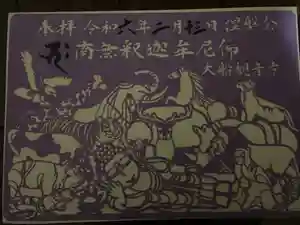 奉拝 令和六年二月十三日 涅槃会
南無釈迦牟尼仏
大船観音寺